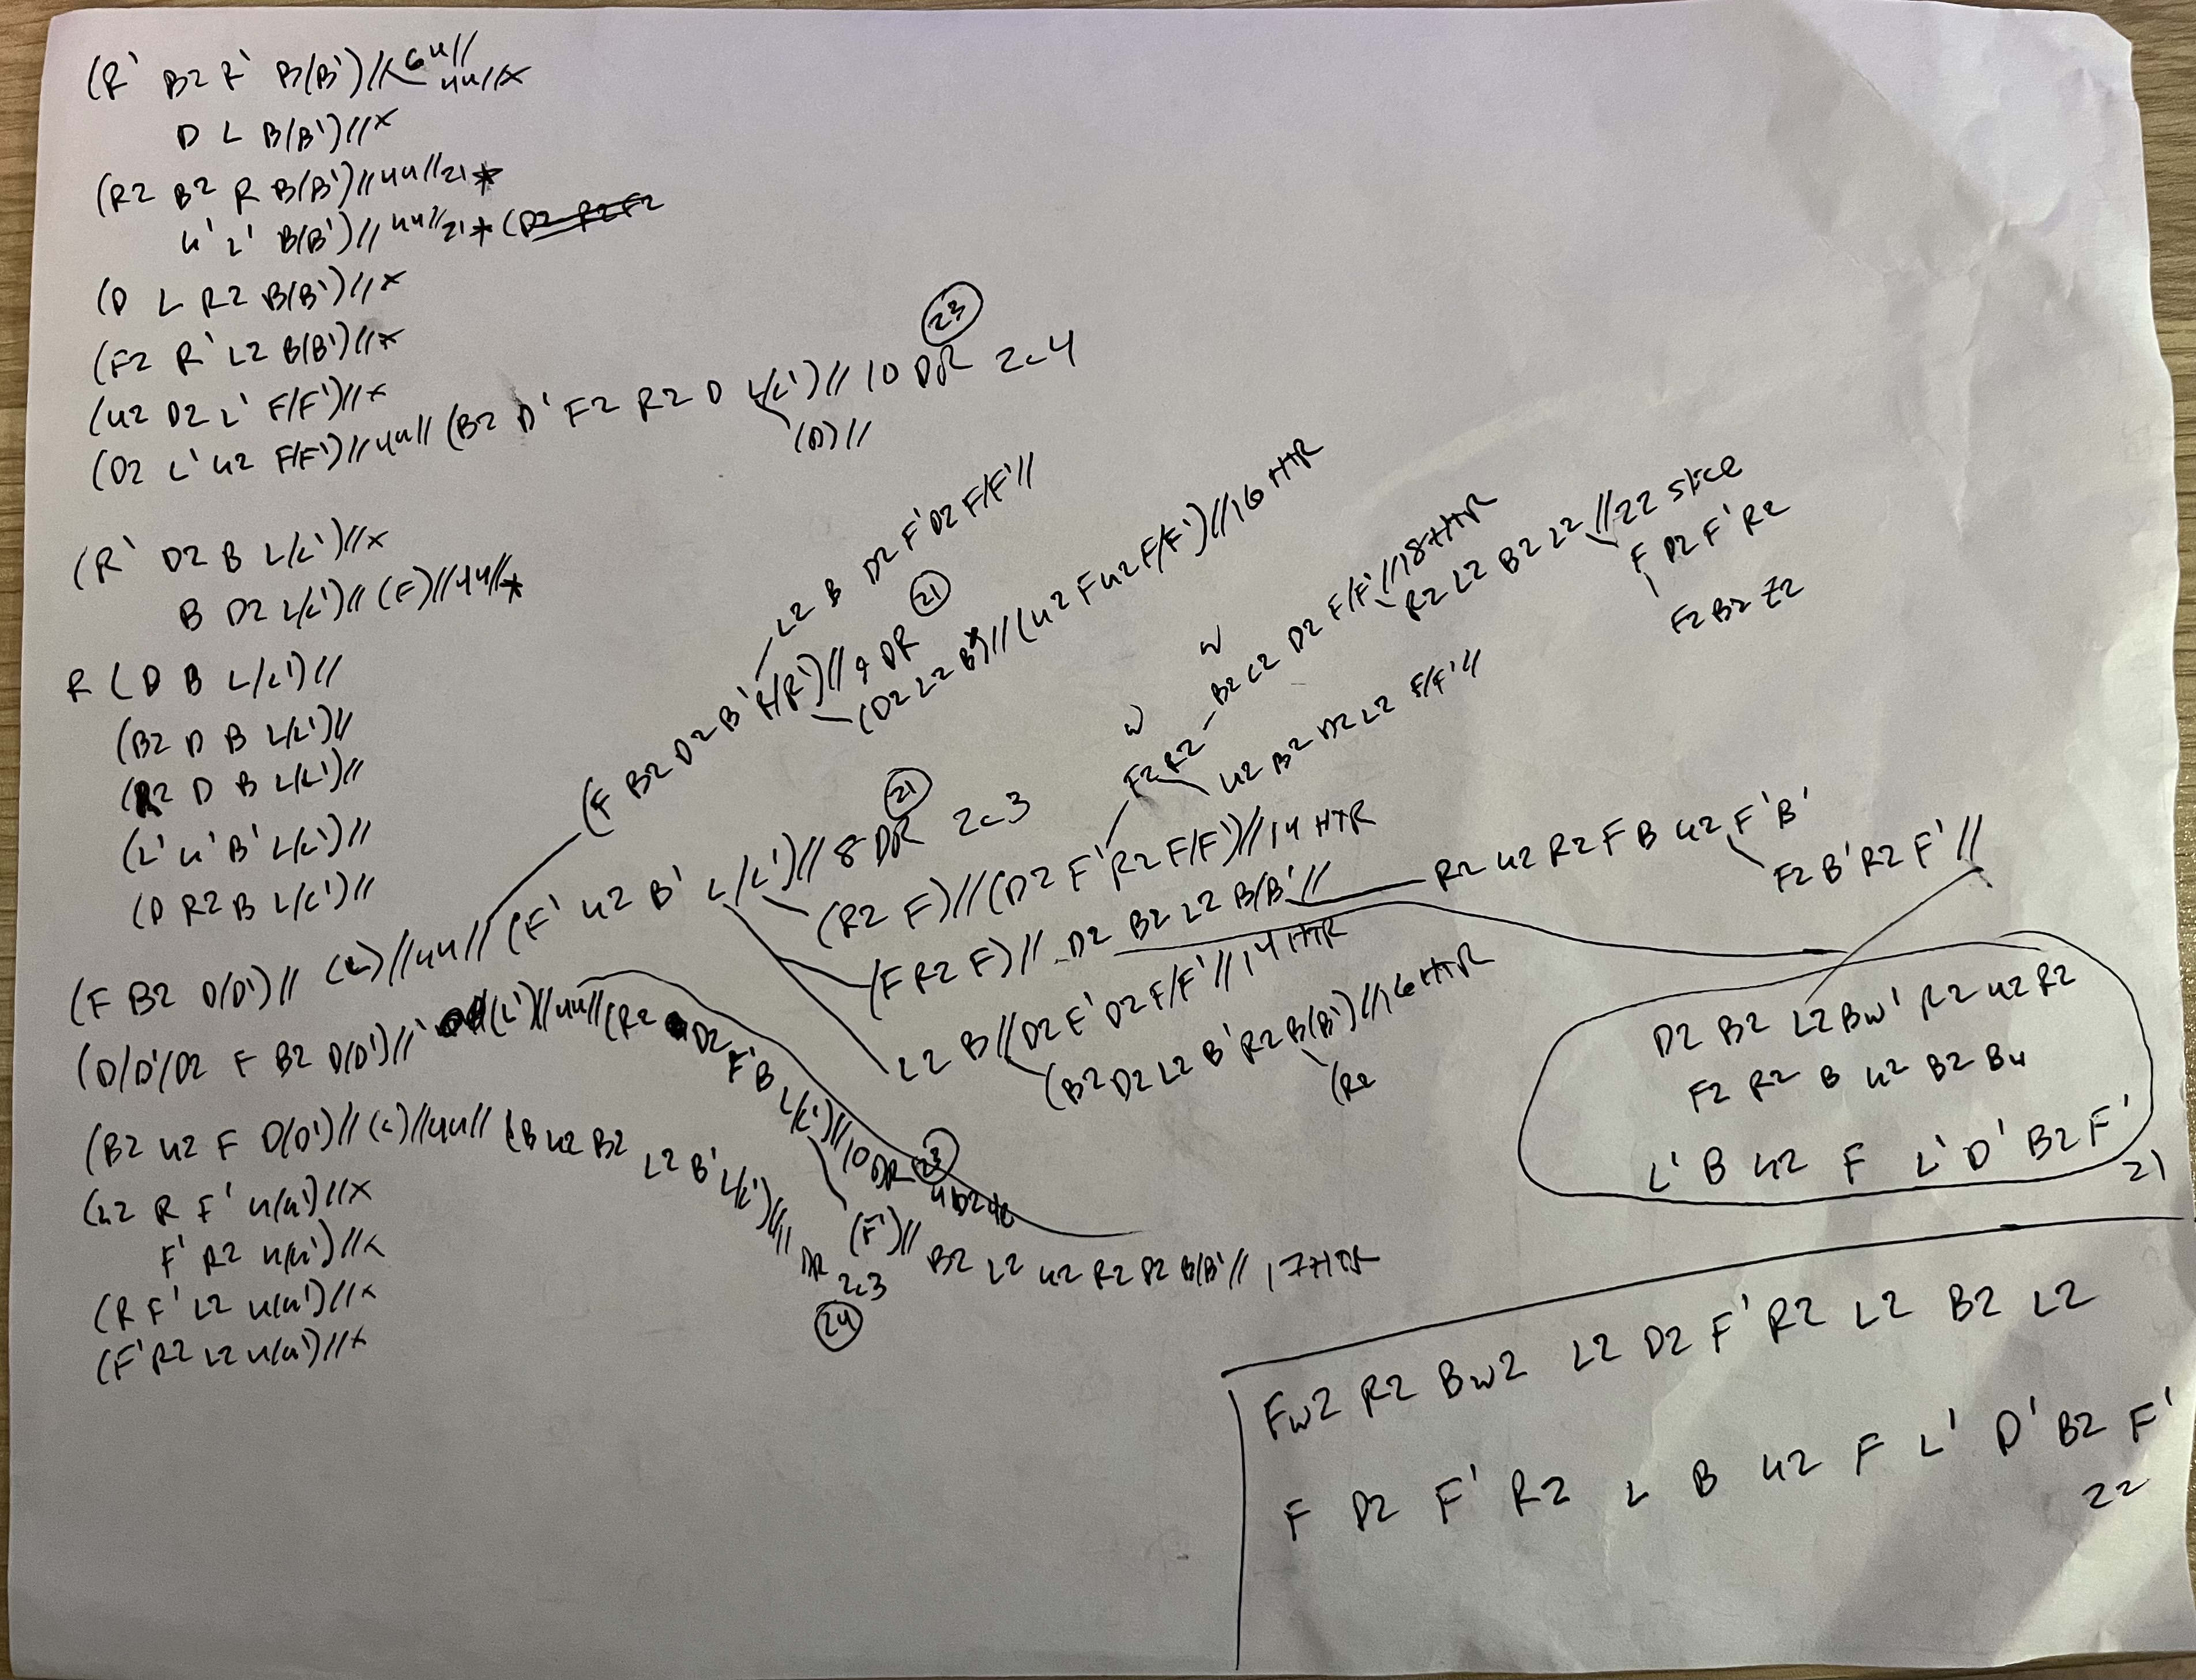 (R' B2 R' B(B')//6 4u//
4u//x
D L B(B')//x
(R2 B2 R B(B')//4u//21*
u' L' B(B')//4u//21*(D2 R2 F2
(D L R2 B(B')//x
(F2 R' L2 B(B')//x
(u2 D2 L' F/F')//x
(D2 L' u2 F/F')//4u//(B2 D' F2 R2 D L/L')//10 DR 2c4
(23)
(D)//
(R' D2 B L/L')//x
B D2 L/L')//(F)//4u//*
R (D B L/L')//
(B2 D B L/L')//
(R2 D B L/L')//
(L' u' B' L/L')//
(D R2 B L/L')//
(F B2 D/D')//(L)//4u//(F' u2 B' L/L')//8 DR 2c3
(21)
(F B2 D2 B' R/R')//9 DR
(21)
L2 B D2 F' D2 F/F'//
(D2 L2 B')//(u2 F u2 F/F')//16 HTR
(R2 F)//(D2 F' R2 F/F')//14 HTR
F2 R2
w
B2 L2 D2 F/F'//18 HTR
w
R2 L2 B2 L2//22 slice
F D2 F' R2
F2 B2
u2 B2 D2 L2 F/F'//
(F R2 F)//D2 B2 L2 B/B'//
R2 u2 R2 F B u2 F' B'
F2 B' R2 F'//
L2 B//(D2 F' D2 F/F'//14 HTR
(B2 D2 L2 B' R2 B(B')//16 HTR
(R2
(D/D'/D2 F B2 D/D')//(L')//4u//(R2 D2 F' B L/L')//10 DR
(23)
(F')//B2 L2 u2 R2 D2 B/B'//17 HTR
(B2 u2 F D(D')//(L)//4u//(B u2 B2 L2 B' L/L')//11
DR
2c3
(24)
(u2 R F' u(u')//x
F' R2 u(u')//x
(R F' L2 u(u')//x
(F' R2 L2 u(u')//x
D2 B2 L2 Bw' R2 u2 R2
F2 R2 B u2 B2 Bu
L' B u2 F L' D' B2 F'
21
Fw2 R2 Bw2 L2 D2 F' R2 L2 B2 L2
F D2 F' R2 L B u2 F L' D' B2 F'
22